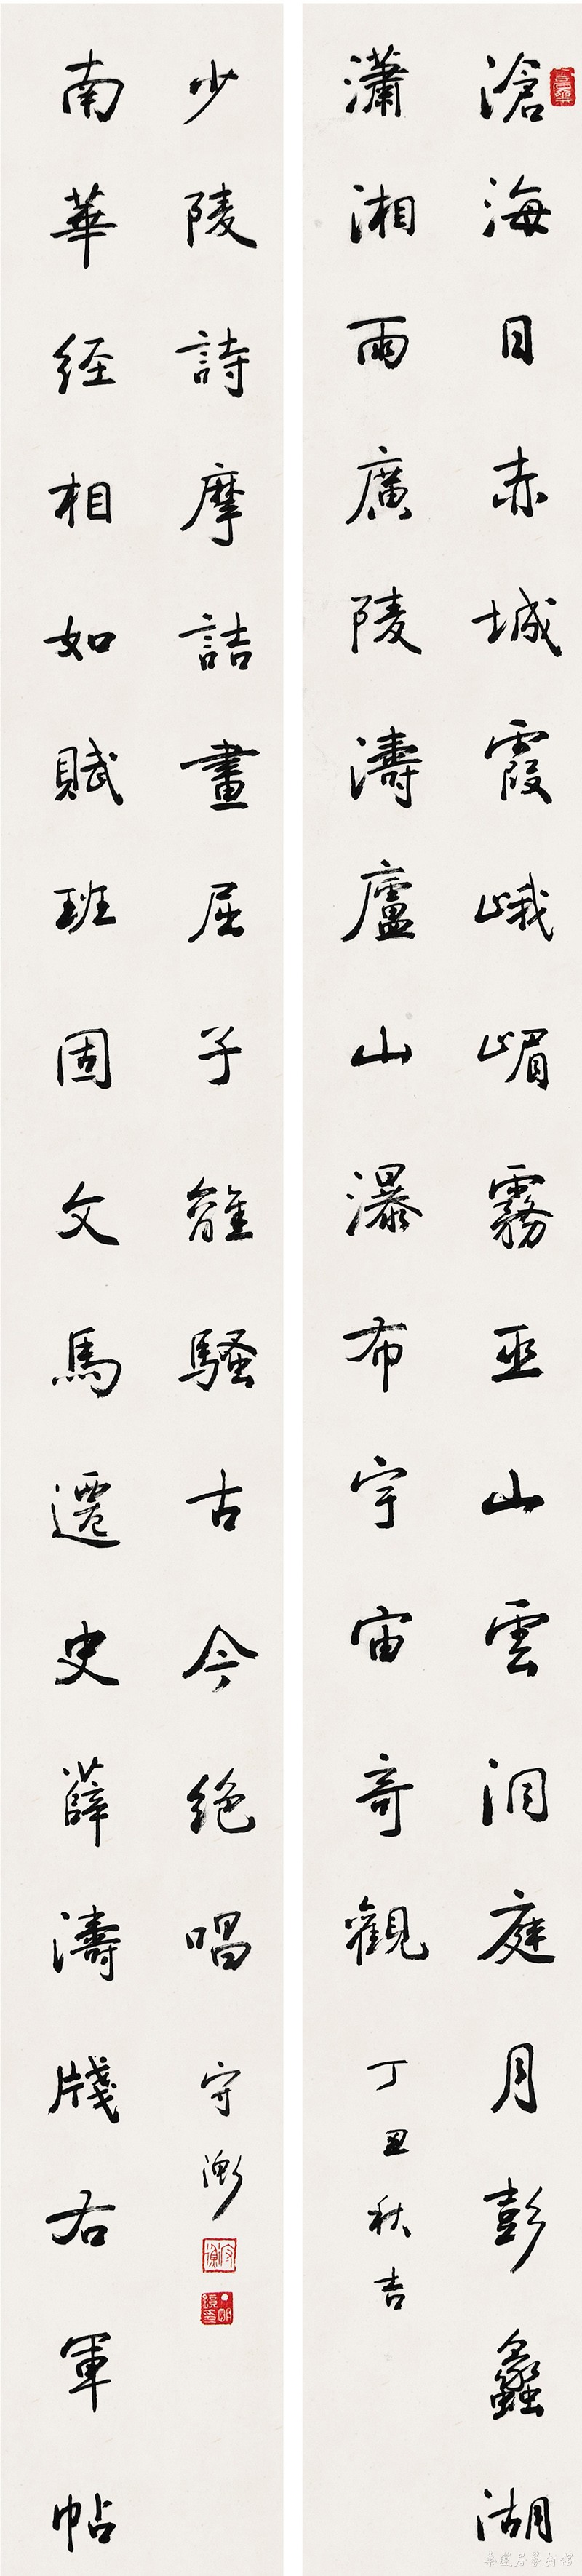 滄海日赤城霞峨嵋霧巫山雲洞庭月彭蠡湖
瀟湘雨廣陵濤廬山瀑布宇宙奇觀
丁丑秋吉
南華経相如賦班固文馬遷史薛濤牋右軍帖
少陵詩摩詰畫屈子離騷古今絕唱
守